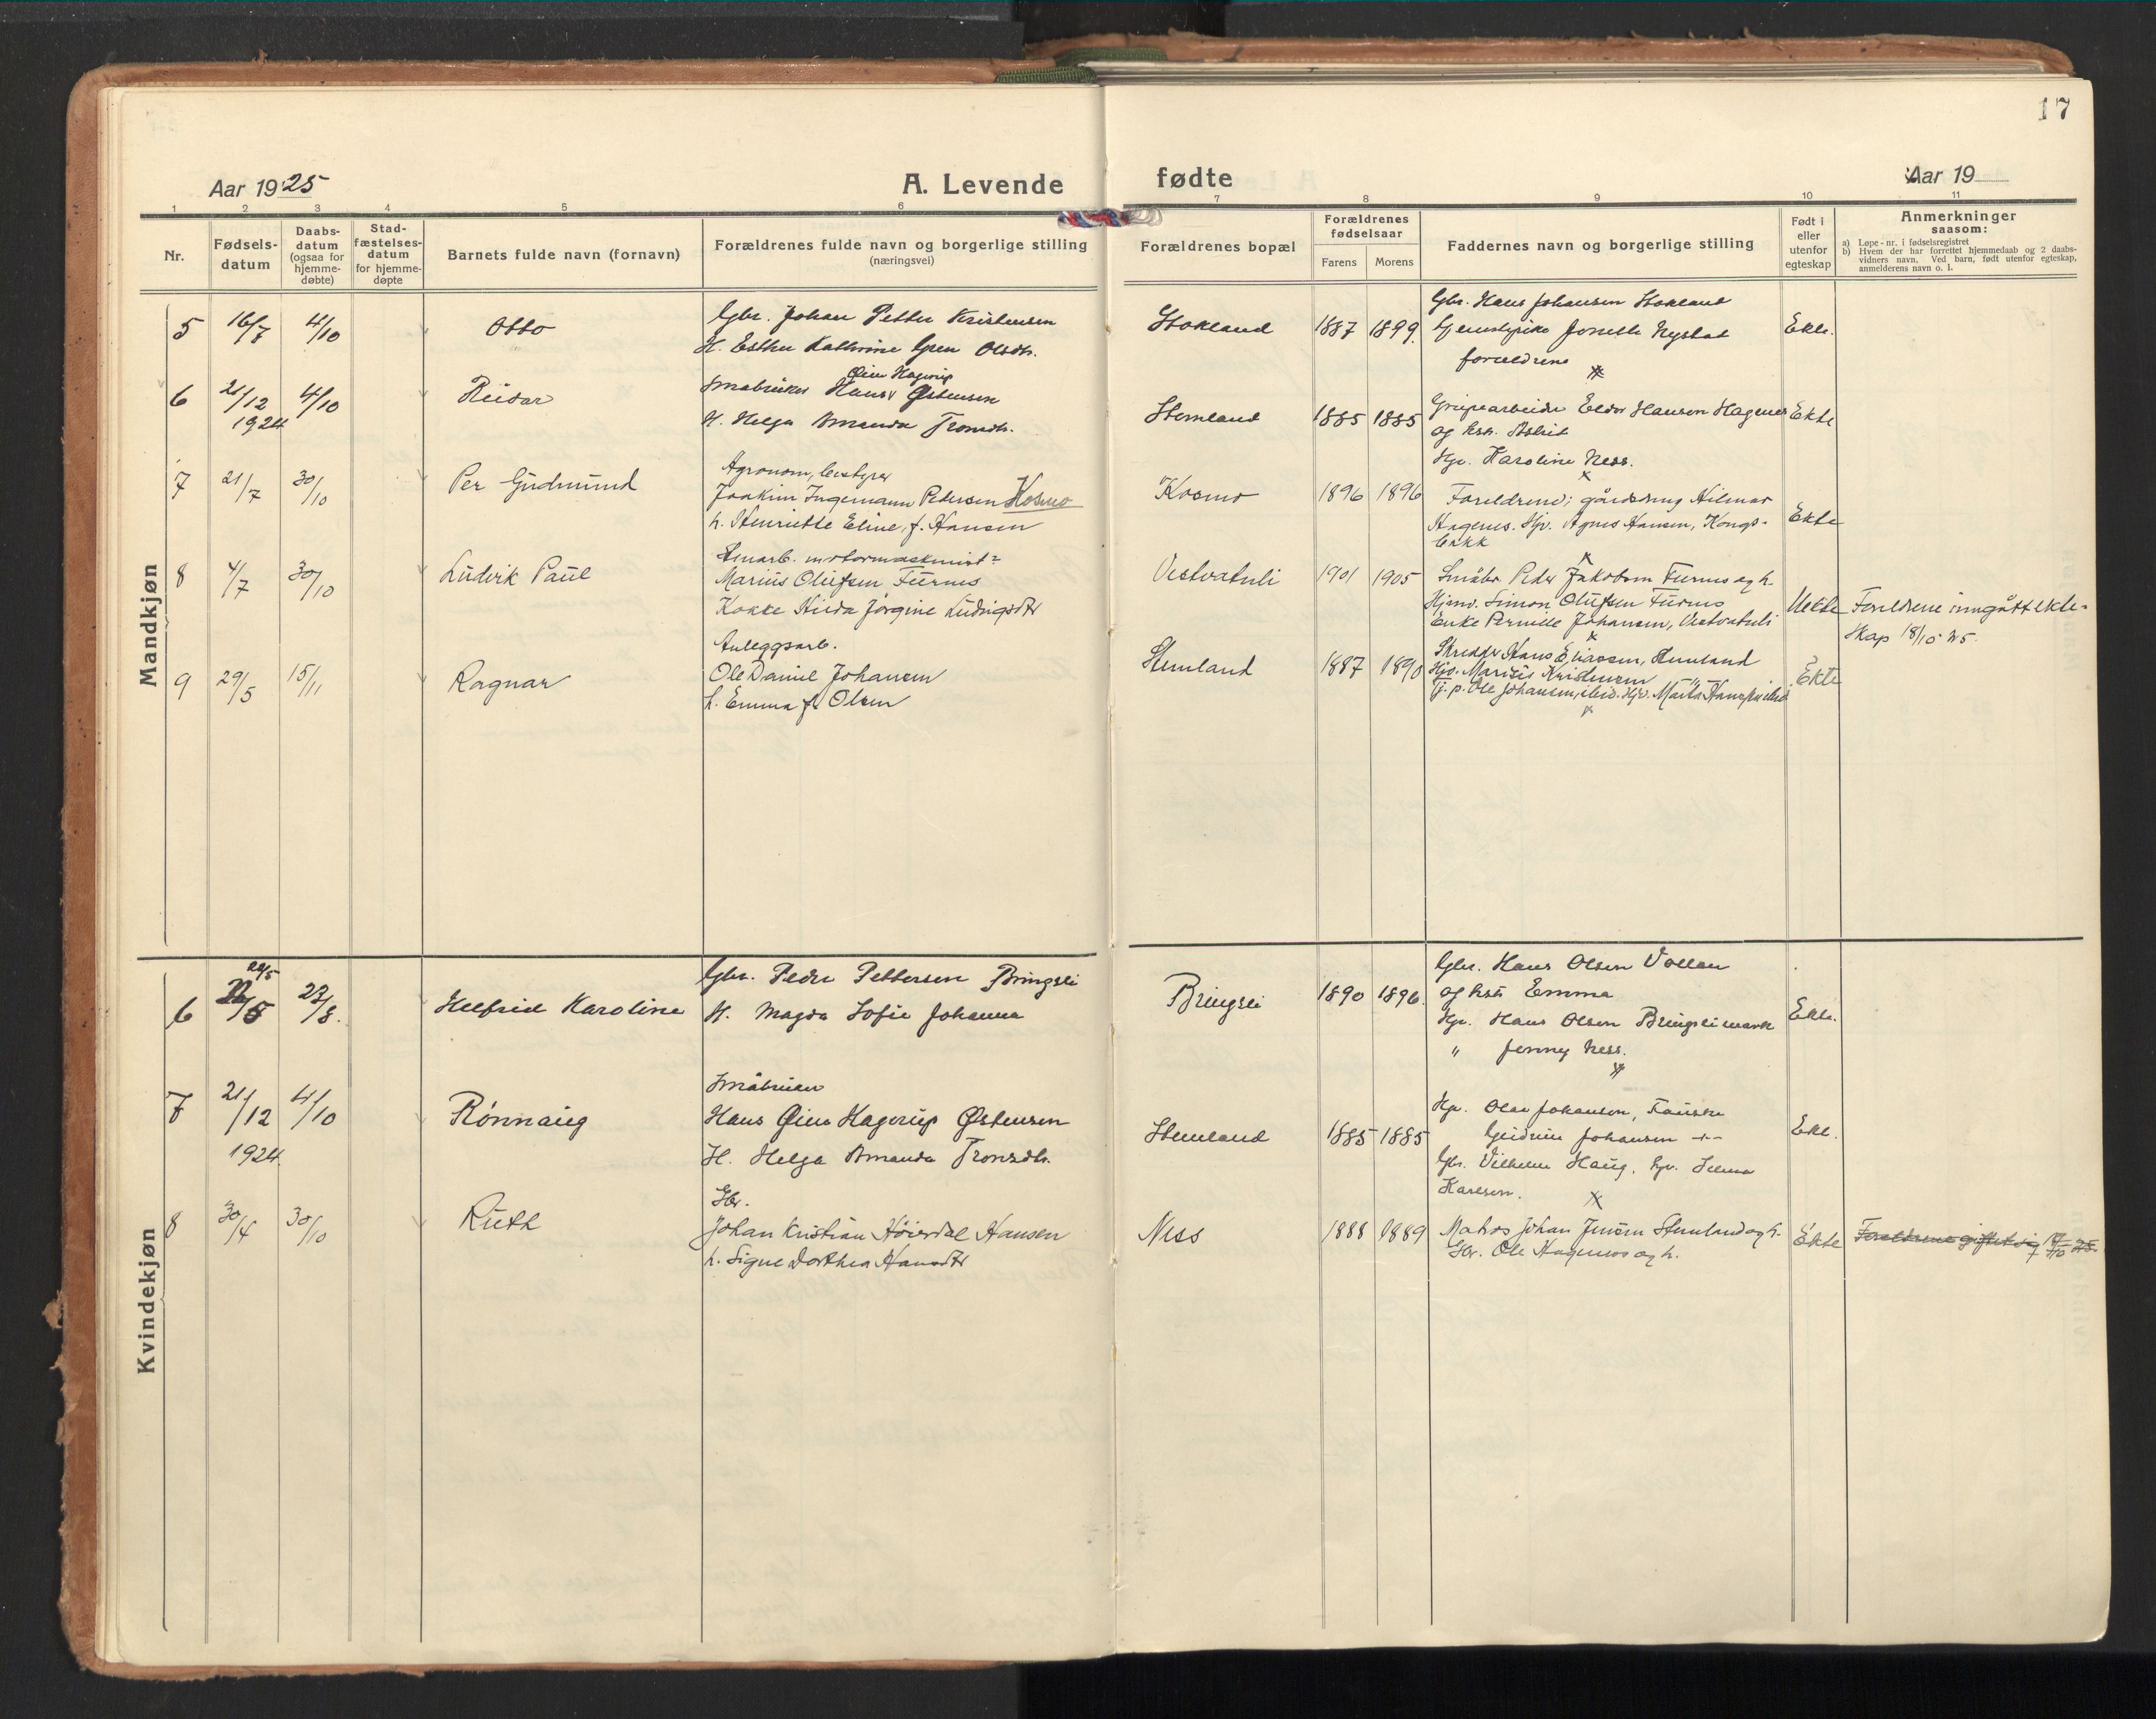 17
Aar 1925
A. Levende
fødte
Aar 19
1 2 3 4 5 6 7 8 9 10 11
Nr.
Fødsels-
datum
Daabs-
datum
(ogsaa for
hjemme-
døbte)
Stad-
fæstelses-
datum
for hjemme-
døpte
Barnets fulde navn (fornavn)
Forældrenes fulde navn og borgerlige stilling
(næringsvei)
Forældrenes bopæl
Forældrenes
fødselsaar
Farens Morens
Faddernes navn og borgerlige stilling
Født i
eller
utenfor
egteskap
Anmerkninger
saasom:
a) Løpe-nr. i fødselsregistret
b) Hvem der har forrettet hjemmedaab og 2 daabs-
vidners navn. Ved barn, født utenfor egteskap,
anmelderens navn o. l.
Mandkjøn
5 16/7 4/10 Otto
Gbr. Johan Petter Kristensen
H. Esther Kathrine Olsdtr.
Stokland 1887 1899
Gbr. Hans Johansen Stokland
Jonette Nystad
foreldrene
Ekte.
6 21/12 4/10 Reidar
1924
Øien Hagerup
Småbruker Hans Østensen
H. Helga Amanda Tronsdtr.
Stemland 1885 1885
Grubearbeider Hansen Hagenes
og kstr. Astrid
Hp. Karoline Ness.
Ekte
7 21/7 30/10 Per Gudmund
Agronom, bestyrer
Joakim Ingemann Pedersen Kosmo
h. Henriette Eline, f. Hansen
Kosmo 1896 1896
Foreldrene; gårdsdreng Hilmar
Hagenes. Hjv. Agnes Hansen, Kongs-
bakk
Ekte
8 4/7 30/10 Ludvik Paul
motormaskinist
Marius Olufsen Furnes
Kokke Hilda Jørgine Ludvigsdtr
Vestvatnli 1901 1905
Småbr. Peder Jakobsen Furnes og h.
Hjmv. Simon Olufsen Furnes
Enke Pernille Johansen, Vestvatnli
Uekte
Foreldrene inngått ekte-
skap 18/10-25.
9 29/5 15/11 Ragnar
Anleggsarb.
Ole Daniel Johansen
h. Emma f. Olsen
Stemland 1887 1890
Skredder Hans Eliassen, Stemland
Hjv. Marius Kristensen -"-
Tj. p. Ole Johansen, ibid. Hjv. Marta Hansen, ibid
Ekte
Kvindekjøn
22/5
6 23/8. Helfrid Karoline
Gbr. Peder Pettersen Bringsli
H. Magda Sofie Johanna
Bringsli 1890 1896.
Gbr. Hans Olsen Vollan
og kstr Emma
Hp. Hans Olsen Bringslimark
" Jenny Ness.
Ekte.
7 21/12 4/10 Rønnaug
1924.
Småbruker
Hans Øien Hagerup Østensen
H. Helga Amanda Tronsdtr.
Stemland 1885 1885
Hp. Olav Johansen, Fauske
Gudrun Johansen -"-
Gbr. Vilhelm Haug, hp. Selma
Karlsen.
Ekt.
8 30/4 30/10 Ruth
Gbr.
Johan Kristian Høierdal Hansen
h. Signe Dorthea Hansdtr
Ness 1888 1889
Matros Johan Jensen Stemland og h.
Gbr. Ole Hagenes og h.
Ekte
Foreldrene giftet sig 18/10 25.